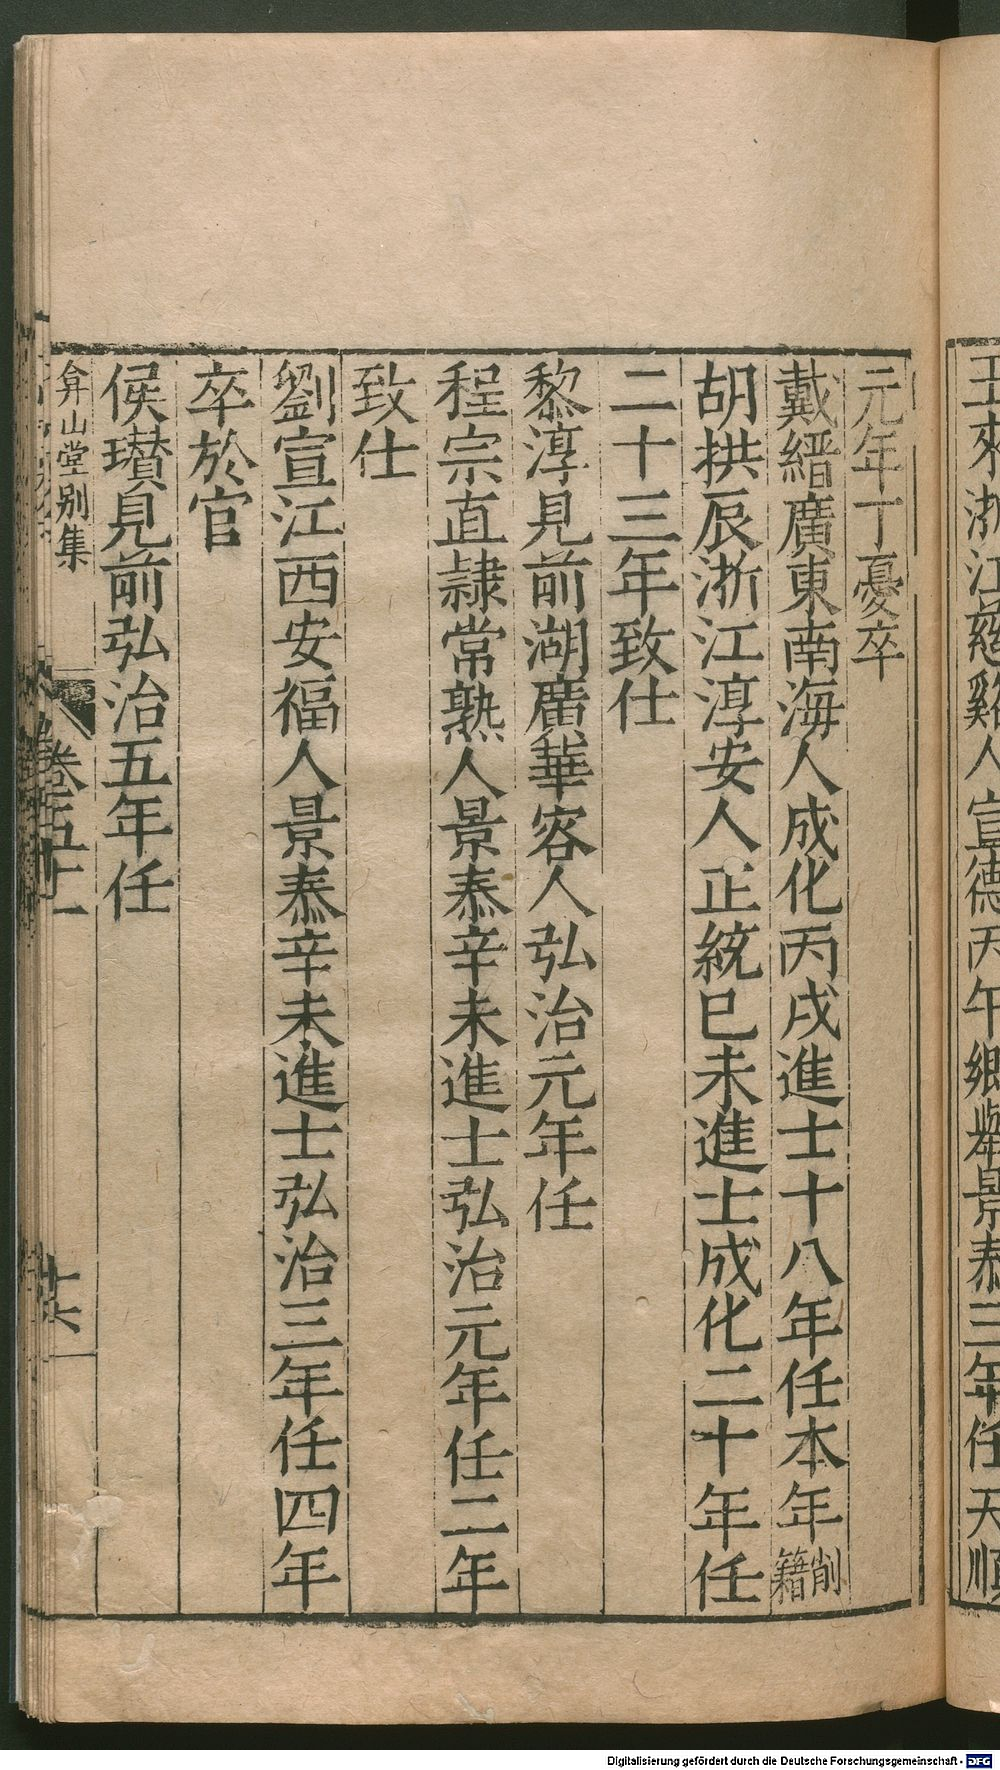 王來浙江慈谿人宣德丙午鄉舉景泰三年任天順
元年丁憂卒
戴縉廣東南海人成化丙戌進士十八年任本年削籍
胡拱辰浙江淳安人正統已未進士成化二十年任
二十三年致仕
黎淳見前湖廣華容人弘治元年任
程宗直隷常熟人景泰辛未進士弘治元年任二年
致仕
劉宣江西安福人景泰辛未進士弘治三年任四年
卒於官
侯瓚見前弘治五年任
弇山堂别集
卷五十
十六
Digitalisierung gefördert durch die Deutsche Forschungsgemeinschaft - DFG